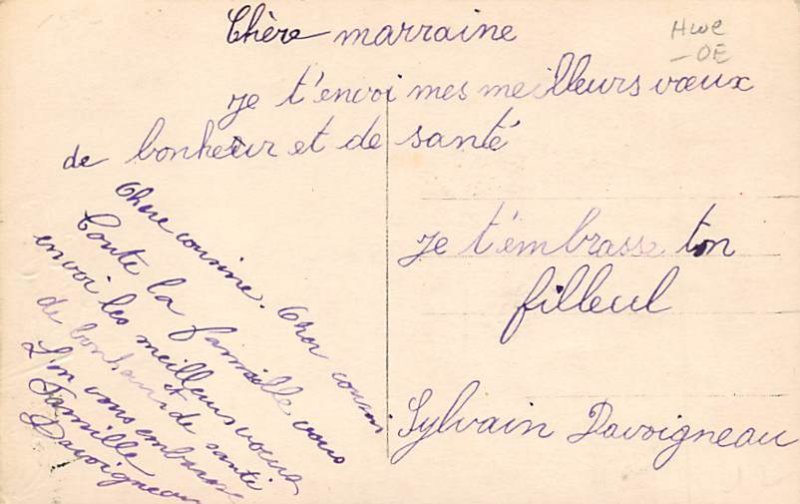 Chère marraine
Hwe
-OE
je t'envoi mes meilleurs vœux
de bonheur et de santé
Je t'embrasse ton
filleul
Sylvain Davoigneau
Chère cousine. Cher cousin
Toute la famille vous
envoi les meilleurs voeux
de bonheur de santé
L'on vous embrasse
Famille
Davoigneau